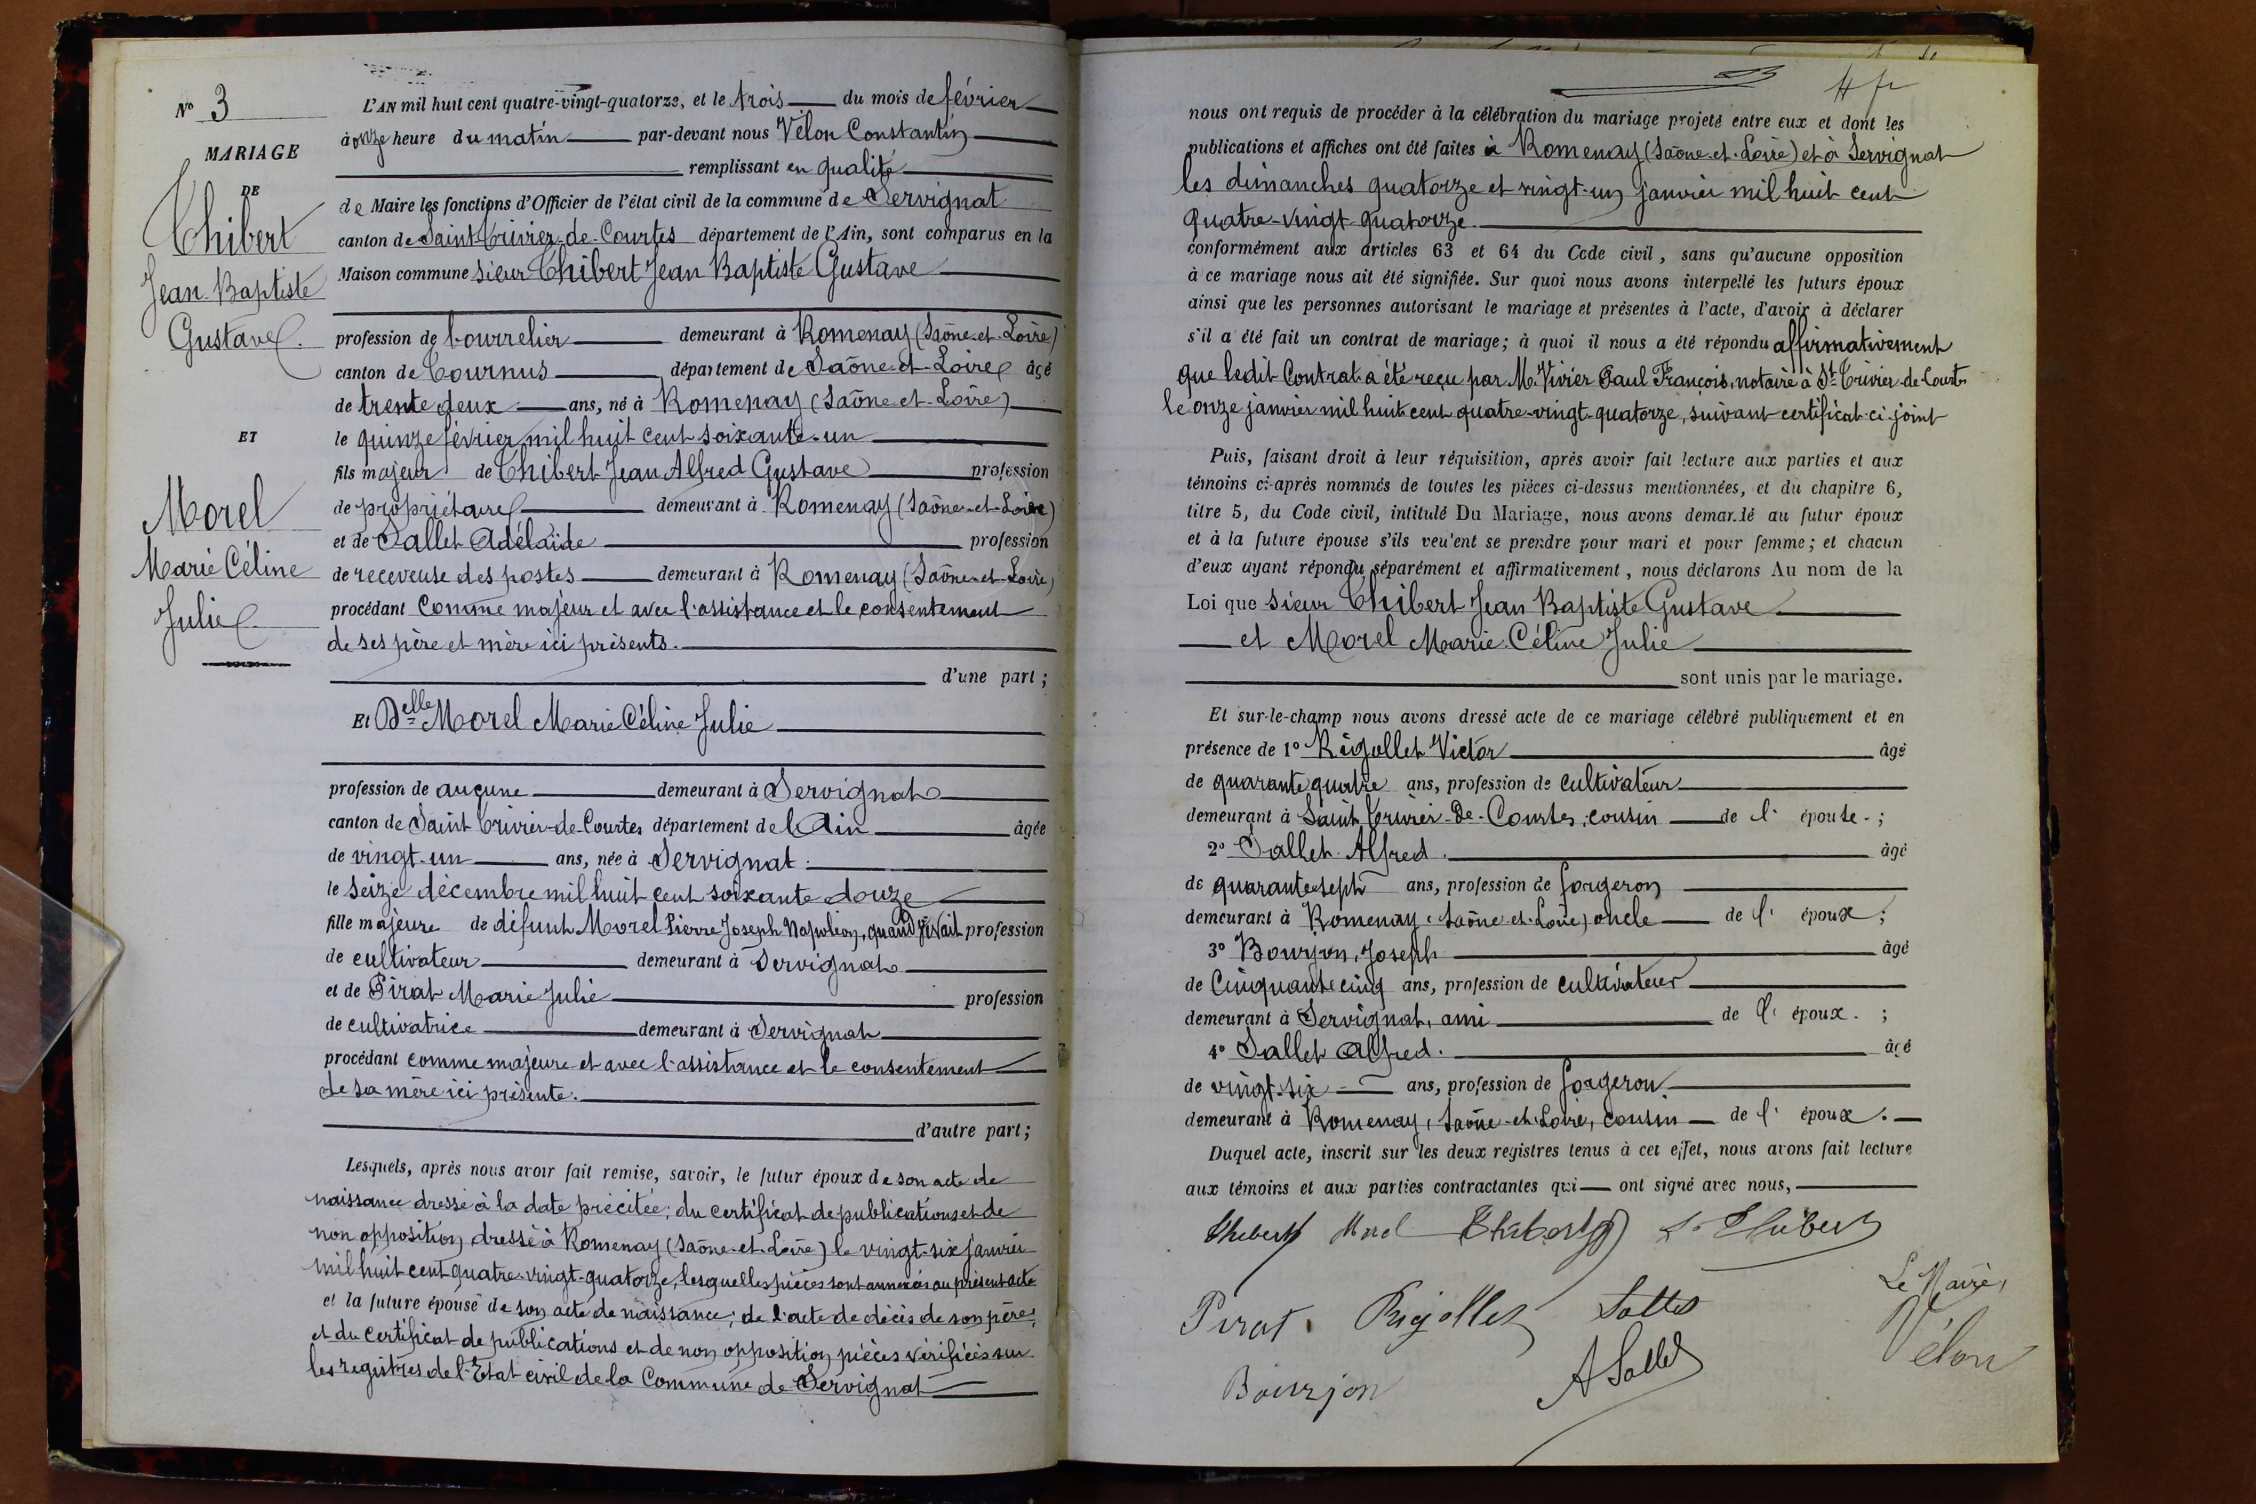 N° 3
MARIAGE
DE
Thibert
Jean-Baptiste
Gustave.
ET
Morel
Marie Céline
Julie
L'AN mil huit cent quatre-vingt-quatorze, et le trois du mois de février
à onze heure du matin par-devant nous Vélon Constantin
remplissant en qualité
de Maire les fonctions d'Officier de l'état civil de la commune de Servignat
canton de Saint-Trivier-de-Courtes département de l'Ain, sont comparus en la
Maison commune sieur Thibert Jean Baptiste Gustave
profession de bourrelier demeurant à Romenay (Saône-et-Loire)
canton de Tournus département de Saône-et-Loire âgé
de trente deux ans, né à Romenay (Saône-et-Loire)
le quinze février mil huit cent soixante-un
fils majeur de Thibert Jean Alfred Gustave profession
de propriétaire demeurant à Romenay (Saône-et-Loire)
et de Sallet Adélaïde profession
de receveuse des postes demeurant à Romenay (Saône-et-Loire)
procédant comme majeur et avec l'assistance et le consentement
de ses père et mère ici présents.
d'une part;
Et Delle Morel Marie Céline Julie
profession de aucune demeurant à Servignat
canton de Saint Trivier-de-Courtes département de l'Ain âgée
de vingt-un ans, née à Servignat
le seize décembre mil huit cent soixante douze
fille majeure de défunt Morel Pierre Joseph Napoléon, quand vivait profession
de cultivateur demeurant à Servignat
et de Pirat Marie Julie profession
de cultivatrice demeurant à Servignat
procédant comme majeure et avec l'assistance et le consentement
de sa mère ici présente.
d'autre part;
Lesquels, après nous avoir fait remise, savoir, le futur époux de son acte de
naissance dressé à la date précitée; du certificat de publications et de
non opposition dressé à Romenay (Saône-et-Loire) le vingt-six janvier
mil huit cent quatre-vingt-quatorze, lesquelles pièces sont annexées au présent acte
et la future épouse de son acte de naissance; de l'acte de décès de son père,
et du certificat de publications et de non opposition pièces vérifiées sur
les registres de l'Etat civil de la Commune de Servignat
nous ont requis de procéder à la célébration du mariage projeté entre eux et dont les
publications et affiches ont été faites à Romenay (Saône-et-Loire) et à Servignat
les dimanches quatorze et vingt-un janvier mil huit cent
quatre-vingt-quatorze.
conformément aux articles 63 et 64 du Code civil, sans qu'aucune opposition
à ce mariage nous ait été signifiée. Sur quoi nous avons interpellé les futurs époux
ainsi que les personnes autorisant le mariage et présentes à l'acte, d'avoir à déclarer
s'il a été fait un contrat de mariage; à quoi il nous a été répondu affirmativement
que ledit Contrat a été reçu par M. Vivier Paul François, notaire à St-Trivier-de-Courtes
le onze janvier mil huit cent quatre-vingt-quatorze, suivant certificat ci-joint
Puis, faisant droit à leur réquisition, après avoir fait lecture aux parties et aux
témoins ci-après nommés de toutes les pièces ci-dessus mentionnées, et du chapitre 6,
titre 5, du Code civil, intitulé Du Mariage, nous avons demandé au futur époux
et à la future épouse s'ils veulent se prendre pour mari et pour femme; et chacun
d'eux ayant répondu séparément et affirmativement, nous déclarons Au nom de la
Loi que sieur Thibert Jean Baptiste Gustave
et Morel Marie Céline Julie
sont unis par le mariage.
Et sur-le-champ nous avons dressé acte de ce mariage célébré publiquement et en
présence de 1° Rigollet Victor âgé
de quarante quatre ans, profession de cultivateur
demeurant à Saint Trivier-de-Courtes, cousin de l' épouse;
2° Sallet Alfred. âgé
de quarante sept ans, profession de forgeron
demeurant à Romenay (Saône-et-Loire) oncle de l' époux;
3° Bourjon, Joseph âgé
de Cinquante cinq ans, profession de cultivateur
demeurant à Servignat, ami de l' époux. ;
4° Sallet Alfred. âgé
de vingt-six ans, profession de forgeron
demeurant à Romenay, Saône-et-Loire, cousin de l' époux.
Duquel acte, inscrit sur les deux registres tenus à cet effet, nous avons fait lecture
aux témoins et aux parties contractantes qui ont signé avec nous,
Thibert Morel Thibert Thibert
Le Maire,
Pirat Rigollet Sallet
Vélon
A Sallet
Bourjon